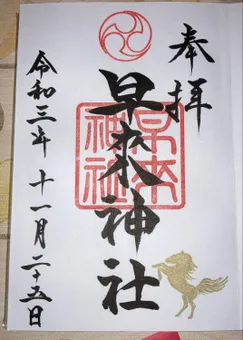 奉拝
早來神社
早来神社
令和三年十一月二十五日